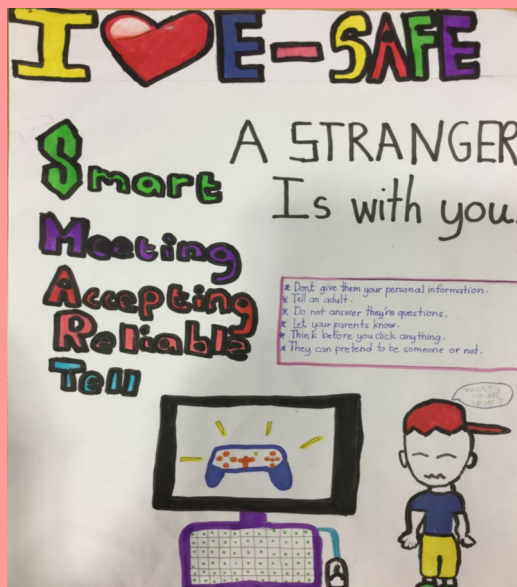 I ❤ E-SAFE
A STRANGER
Is with you.
Smart
Meeting
Accepting
Reliable
Tell
* Dont give them your personal information.
* Tell an adult.
* Do not answer they're questions.
* Let your parents know.
* Think before you click anything.
* They can pretend to be someone or not.
WHAT'S
YOUR